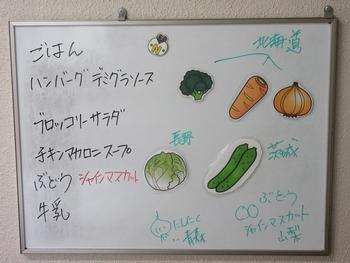 ごはん
ハンバーグデミグラソース
ブロッコリーサラダ
チキンマカロニスープ
ぶどう シャインマスカット
牛乳
北海道
長野
茨城
にんにく
青森
ぶどう
シャインマスカット
山梨